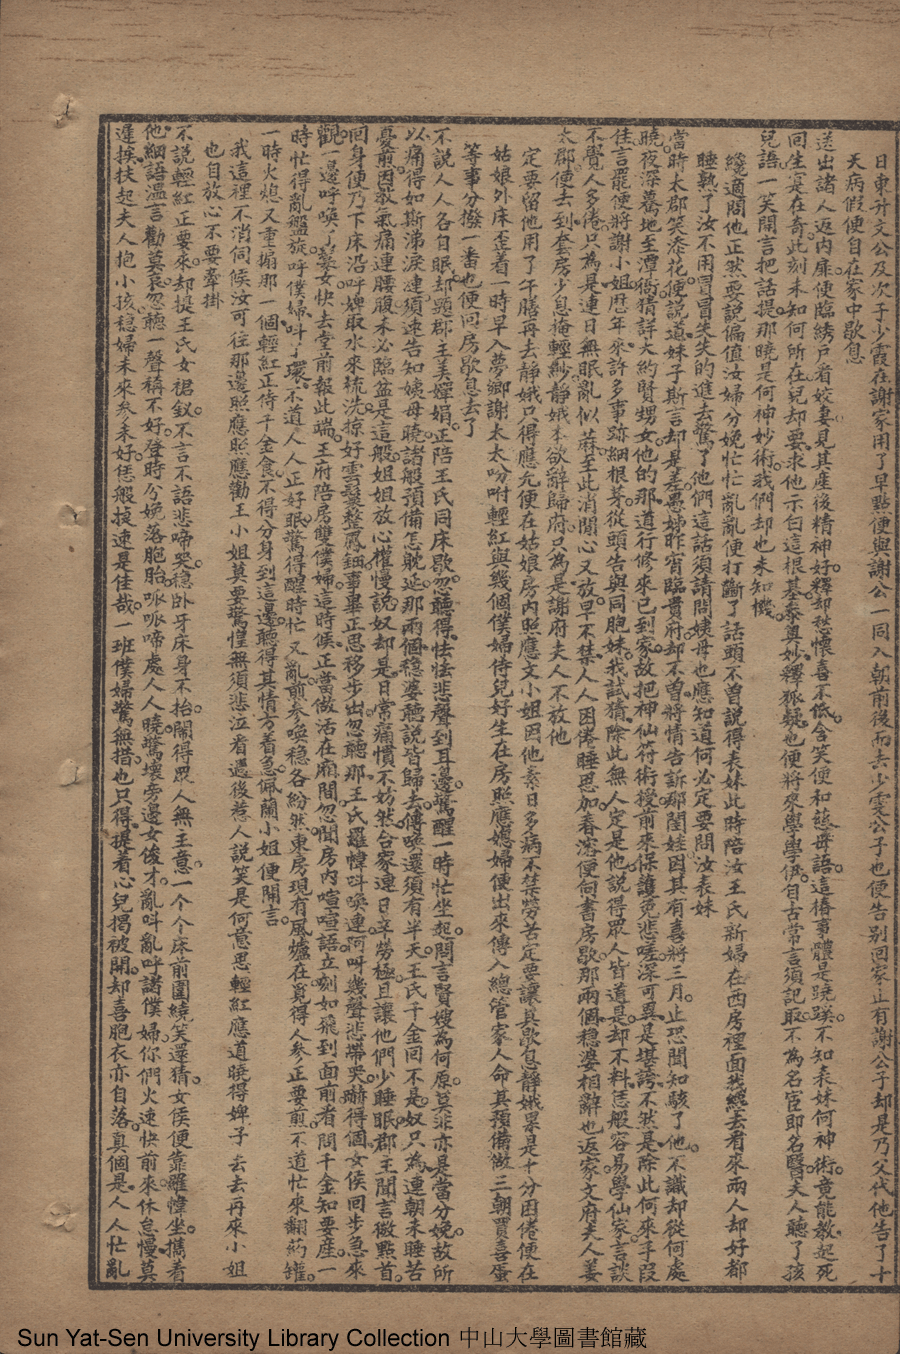 日東升文公及次子少霞在謝家用了早點便與謝公一同入朝前後而去少雯公子也便告别回家止有謝公子却是乃父代他告了十
天病假便自在家中歇息
送出諸人返内扉便臨綉戶看姣妻見其産後精神好釋却愁懷喜不低含笑便和慈母語這樁事體是蹺蹊不知表妹何神術竟能教起死
回生寔在奇此刻未知何所在兒却要求他示白這根基泰真妙釋狐疑也便將來學學伊自古常言須記取不為名宦即名醫夫人聽了孩
兒語一笑開言把話提那曉是何神妙術我們却也未知機
纔適問他正然要說偏值汝婦分娩忙忙亂亂便打斷了話頭不曾說得表妹此時陪汝王氏新婦在西房裡面我纔去看來兩人却好都
睡熟了汝不用冒冒失失的進去驚了他們這話須請問姨母也應知道何必定要問汝表妹
當時太郡笑添花便說道妹子斯言却是差愚姊昨宵臨貴府却不曾將情告訴那閨娃因其有喜將三月止恐聞知駭了他不識却從何處
曉夜深驀地至潭衙猜詳大約賢甥女他的那道行修來已到家故把神仙符術授前來保護免悲嗟深可異是堪誇不然是除此何來手段
佳言罷便將謝小姐歴年來許多事跡細根芽從頭告與同胞妹我試猜除此無人定是他說得眾人皆道是却不料恁般容易學仙家言談
不覺人多倦只為是連日無眠亂似麻至此消閒心又放早不禁人人困倦睡思加春深便向書房歇那兩個穩婆相辭也返家文府夫人姜
太郡便去到套房少息掩輕紗靜娥本欲辭歸府只為是謝府夫人不放他
定要留他用了午膳再去靜娥只得應允便在姑娘房内照應文小姐因他素日多病不禁勞苦定要讓其歇息靜娥果是十分困倦便在
姑娘外床歪着一時早入夢鄉謝太太吩咐輕紅與幾個僕婦侍兒好生在房照應媳婦便出來傳入總管家人命其預備做三朝買喜蛋
等事分撥一番也便回房歇息去了
不說人人各自眠却題郡主美嬋娟正陪王氏同床歇忽聽得怯怯悲聲到耳邊驚醒一時忙坐起問言賢嫂為何原莫非亦是當分娩故所
以痛得如斯涕淚漣須速告知姨母曉諸般預備怎躭延那兩個穩婆聽說皆歸去傳喚還須有半天王氏千金回不是奴只為連朝未睡苦
憂煎因歇氣痛連腰腹未必臨盆是這般姐姐放心權慢說奴却是日常痛慣不妨然合家連日辛勞極且讓他們少睡眠郡王聞言微點首
回身便乃下床沿呼婢取水來梳洗掠好雲鬟整鳳鈿事畢正思移步出忽聽那王氏羅幃呌喚連阿呀幾聲悲滯哭嚇得個女侯回步急來
觀一邊呼喚了鬟女快去堂前報此端王府陪房雙僕婦這時候正當做活在廂間忽聞房内喧喧語立刻如飛到面前看問千金知要産一
時忙得亂盤旋呼僕婦呌了環不道人人正好眠驚得醒時忙又亂煎參喚穩各紛然東房現有風爐在覓得人參正要煎不道忙來翻葯罐
一時火熄又重搧那一個輕紅正侍千金食不得分身到這邊聽得其情方着急佩蘭小姐便開言
我這裡不消伺候汝可往那邊照應照應勸王小姐莫要驚惶無須悲泣看過後惹人說笑是何意思輕紅應道曉得婢子去去再來小姐
也自放心不要牽掛
不說輕紅正要來却提王氏女裙釵不言不語悲啼哭穩卧牙床身不抬鬧得眾人無主意一个个床前圍繞笑還猜女侯便靠羅幃坐携着
他綱語溫言勸莫哀忽聽一聲稱不好登時分娩落胞胎呱呱啼處人人曉驚壞旁邊女俊才亂呌亂呼諸僕婦你們火速快前來休怠慢莫
遲挨扶起夫人抱小孩穩婦未來參未好恁般搊速是佳哉一班僕婦驚無措也只得提着心兒揭被開却喜胞衣亦自落真個是人人忙亂
Sun Yat-Sen University Library Collection 中山大學圖書館藏